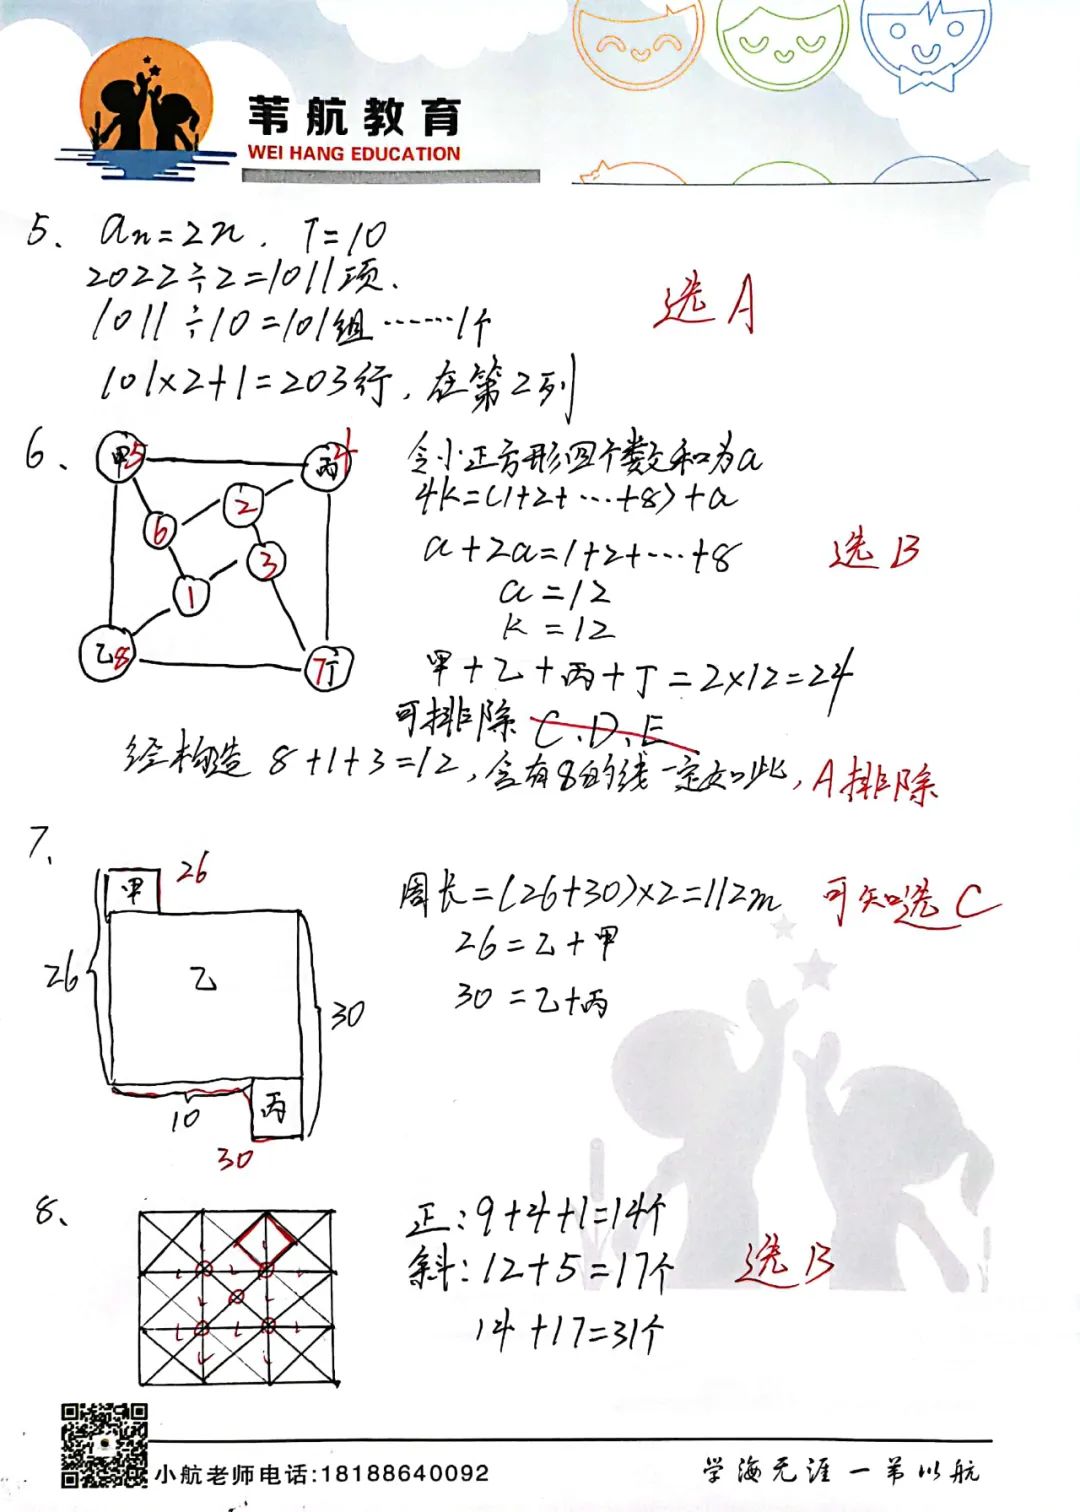 苇航教育
WEI HANG EDUCATION
5、 an=2n. T=10
2022÷2=1011项.
1011÷10=101组……1个
101×2+1=203行,在第2列
选A
6、
甲5
丙4
2
6
3
1
乙8
7丁
令小正方形四个数和为a
4k=(1+2+…+8)+a
a+2a=1+2+…+8
a=12
k=12
选B
甲+乙+丙+丁=2×12=24
可排除 C、D、E
经构造 8+1+3=12,含有8的线一定如此,A排除
7、
甲
26
26
乙
30
10
丙
30
周长=(26+30)×2=112m
可知选C
26=乙+甲
30=乙+丙
8、
正:9+4+1=14个
斜:12+5=17个
选B
14+17=31个
小航老师电话:18188640092
学海无涯一苇以航